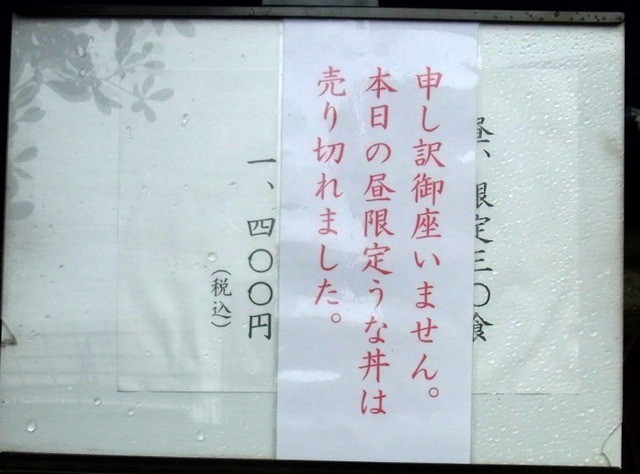 昼、限定三〇食
申し訳御座いません。
本日の昼限定うな丼は
売り切れました。
一、四〇〇円
（税込）